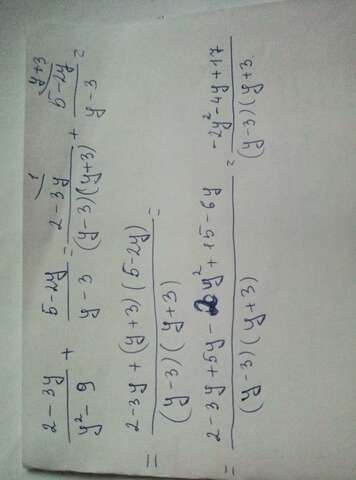 (2-3y)/(y²-9) + (5-2y)/(y-3) = (2-3y)^1/((y-3)(y+3)) + (5-2y)^(y+3)/(y-3) =
= (2-3y+(y+3)(5-2y))/((y-3)(y+3)) =
= (2-3y+5y-2y²+15-6y)/((y-3)(y+3)) = (-2y²-4y+17)/((y-3)(y+3.